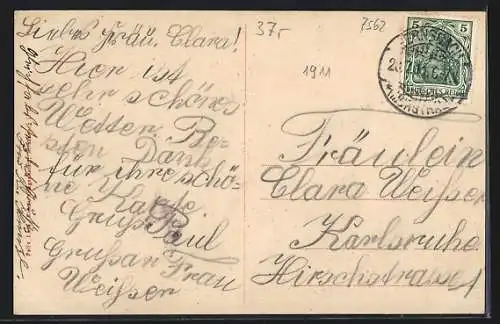 Liebes Fräu. Clara!
Hier ist
sehr schönes
Wetter. Be-
sten Dank
für ihre schö-
ne Karte.
Gruß Paul
Gruß an Frau
Weißer
37.-
7562
1911
5 5
DEUTSCHES REICH
Fräulein
Clara Weißer
Karlsruhe
Hirschstrasse 1